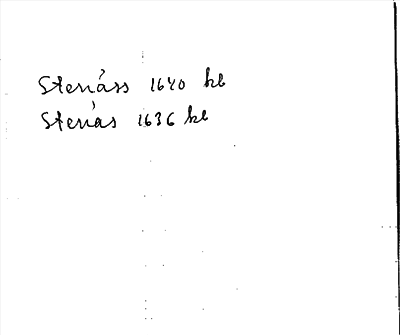 Stenáss 1640 kb
Stenás 1636 kb